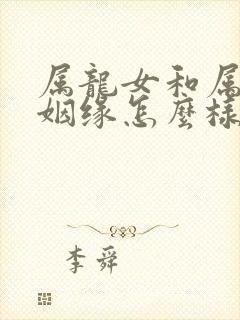 属龍女和属
姻缘怎麼樣
李舜